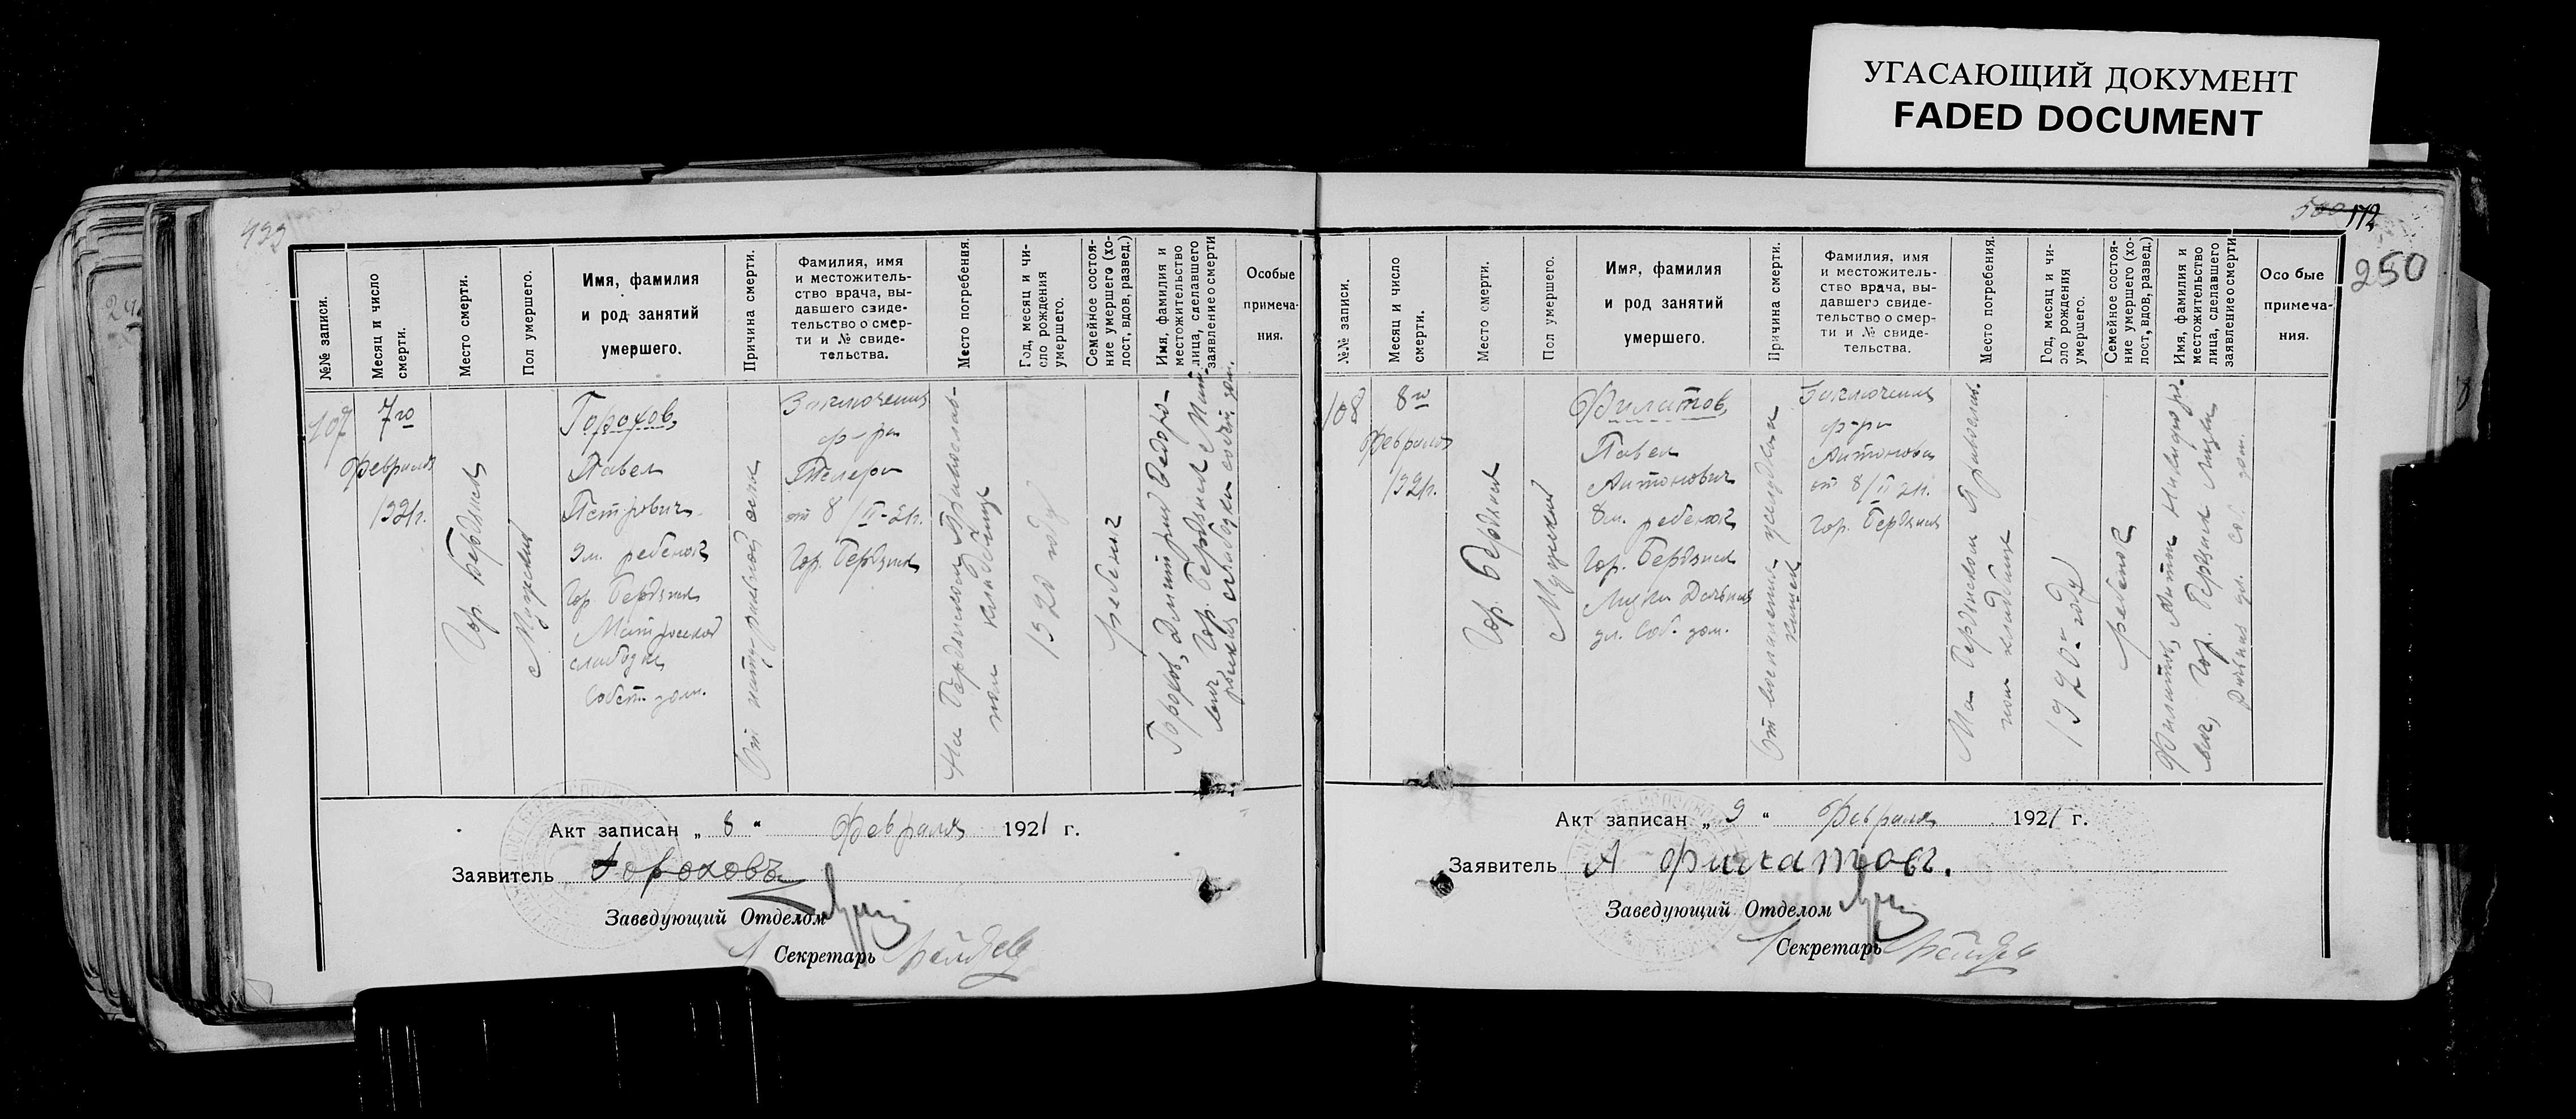 УГАСАЮЩИЙ ДОКУМЕНТ
FADED DOCUMENT
499
№№ записи.
Месяц и число
смерти.
Место смерти.
Пол умершего.
Имя, фамилия
и род занятий
умершего.
Причина смерти.
Фамилия, имя
и местожитель-
ство врача, вы-
давшего свиде-
тельство о смер-
ти и № свиде-
тельства.
Место погребения.
Год, месяц и чи-
сло рождения
умершего.
Семейное состоя-
ние умершего (хо-
лост, вдов, развед.)
Имя, фамилия и
местожительство
лица, сделавшего
заявление о смерти
Особые
примеча-
ния.
107
7го
Февраля
1921г.
Гор. Бердянск
Мужской
Горохов,
Павел
Петрович
9м. ребенок
Гор. Бердянск
Матросская
слабодка
Собст. дом.
От натуральной оспы
Заключения
ф-ра
от 8/II-21г.
Гор. Бердянск
На Бердянском Православ-
ном кладбище
1920 году
ребенок
Горохов, Дмитрий Федоро-
вич, Гор. Бердянск Мат-
росская слабодка собст. дом.
Акт записан „ 8 “ Февраля 1921 г.
Заявитель Гороховъ
Заведующий Отделом
Секретарь
500 172
250
№№ записи.
Месяц и число
смерти.
Место смерти.
Пол умершего.
Имя, фамилия
и род занятий
умершего.
Причина смерти.
Фамилия, имя
и местожитель-
ство врача, вы-
давшего свиде-
тельство о смер-
ти и № свиде-
тельства.
Место погребения.
Год, месяц и чи-
сло рождения
умершего.
Семейное состоя-
ние умершего (хо-
лост, вдов, развед.)
Имя, фамилия и
местожительство
лица, сделавшего
заявление о смерти
Особые
примеча-
ния.
108
8го
Февраля
1921г.
Гор. Бердянск
Мужской
Филатов,
Павел
Антонович
8м. ребенок
Гор. Бердянск
Лиски Дальния
ул. Соб. дом.
От воспаления
кишек
Заключения
ф-ра
Антонова
от 8/II 21г.
Гор. Бердянск
На Бердянском Православ-
ном кладбище
1920 - году
ребенок
Филатов, Антон Никифоро-
вич, Гор. Бердянск Лиски
Дальния ул. Соб. дом.
Акт записан „ 9 “ Февраля 1921 г.
Заявитель А Филатовъ.
Заведующий Отделом
Секретарь